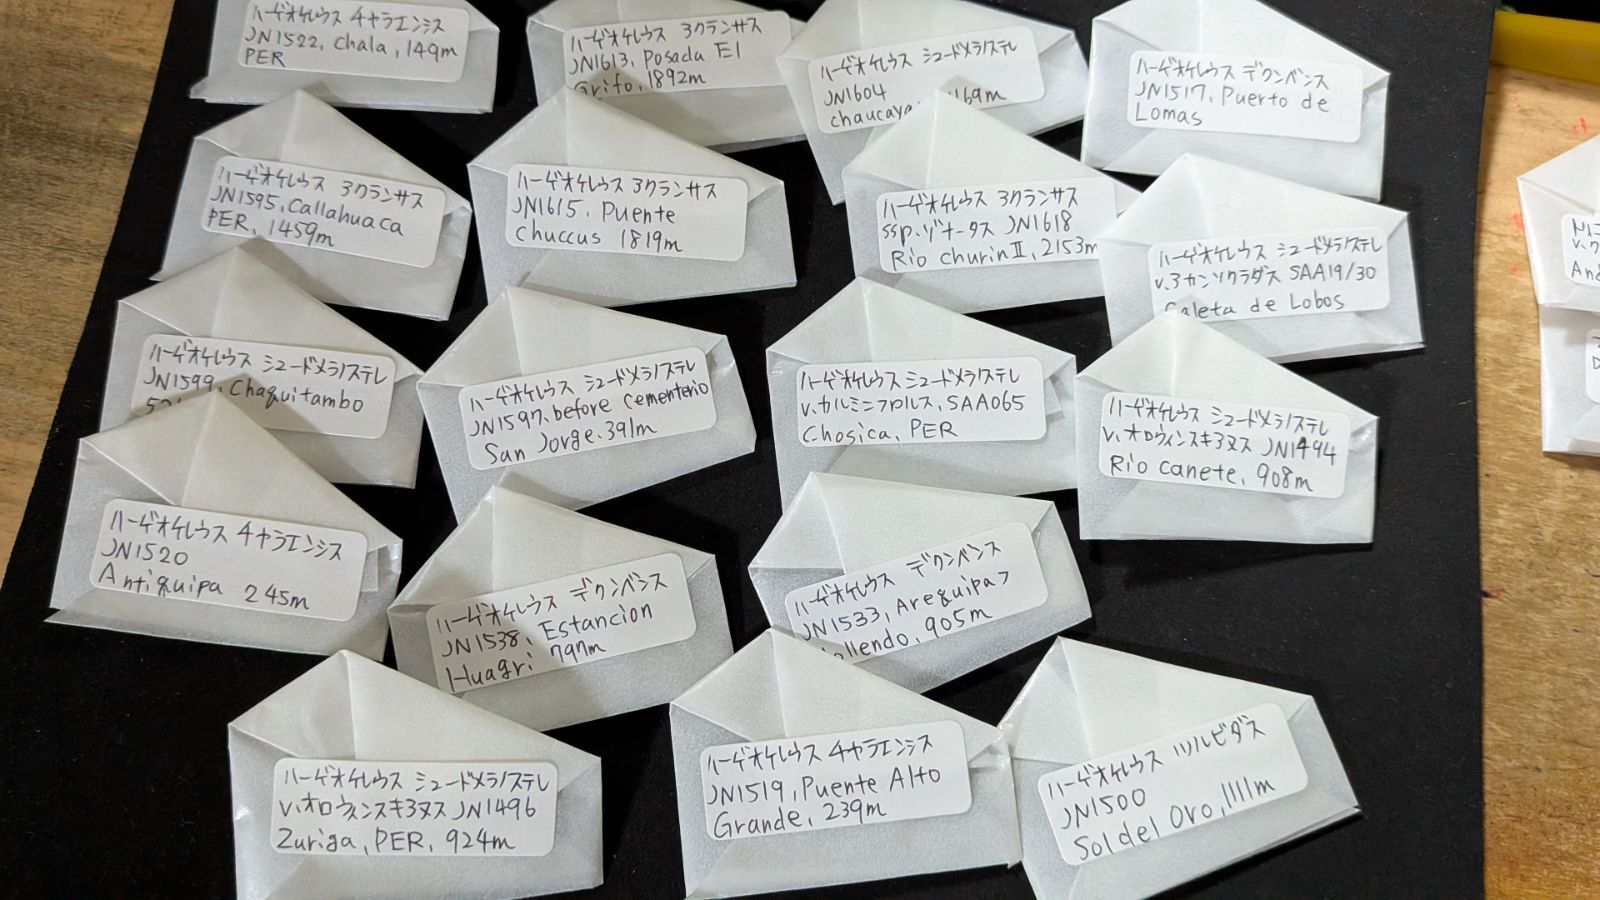 ハーゲオケレウス チャラエンシス
JN1522, Chala, 149m
PER
ハーゲオケレウス ヨクランサス
JN1613, Posada El
Grifo, 1892m
ハーゲオケレウス シュードメラノステレ
JN1604
chaucaya 169m
ハーゲオケレウス デクンベンス
JN1517, Puerto de
Lomas
ハーゲオケレウス ヨクランサス
JN1595, Callahuaca
PER, 1459m
ハーゲオケレウス ヨクランサス
JN1615, Puente
Chuccus 1819m
ハーゲオケレウス ヨクランサス
ssp.ゾナータス JN1618
Rio churin II, 2153m
ハーゲオケレウス シュードメラノステレ
v.ヨカンソクラダス SAA19/30
Caleta de Lobos
ハーゲオケレウス シュードメラノステレ
JN1599, Chaquitambo
ハーゲオケレウス シュードメラノステレ
JN1597, before cementerio
San Jorge, 391m
ハーゲオケレウス シュードメラノステレ
v.カルミニフロルス, SAA065
Chosica, PER
ハーゲオケレウス シュードメラノステレ
v.オロウィンスキヨヌス JN1494
Rio canete, 908m
ハーゲオケレウス チャラエンシス
JN1520
Antiquipa 245m
ハーゲオケレウス デクンベンス
JN1538, Estancion
Huagri 797m
ハーゲオケレウス デクンベンス
JN1533, Arequipa>
ollendo, 905m
ハーゲオケレウス シュードメラノステレ
v.オロウィンスキヨヌス JN1496
Zuriga, PER, 924m
ハーゲオケレウス チャラエンシス
JN1519, Puente Alto
Grande, 239m
ハーゲオケレウス ツルビダス
JN1500
Sol del Oro, 1111m